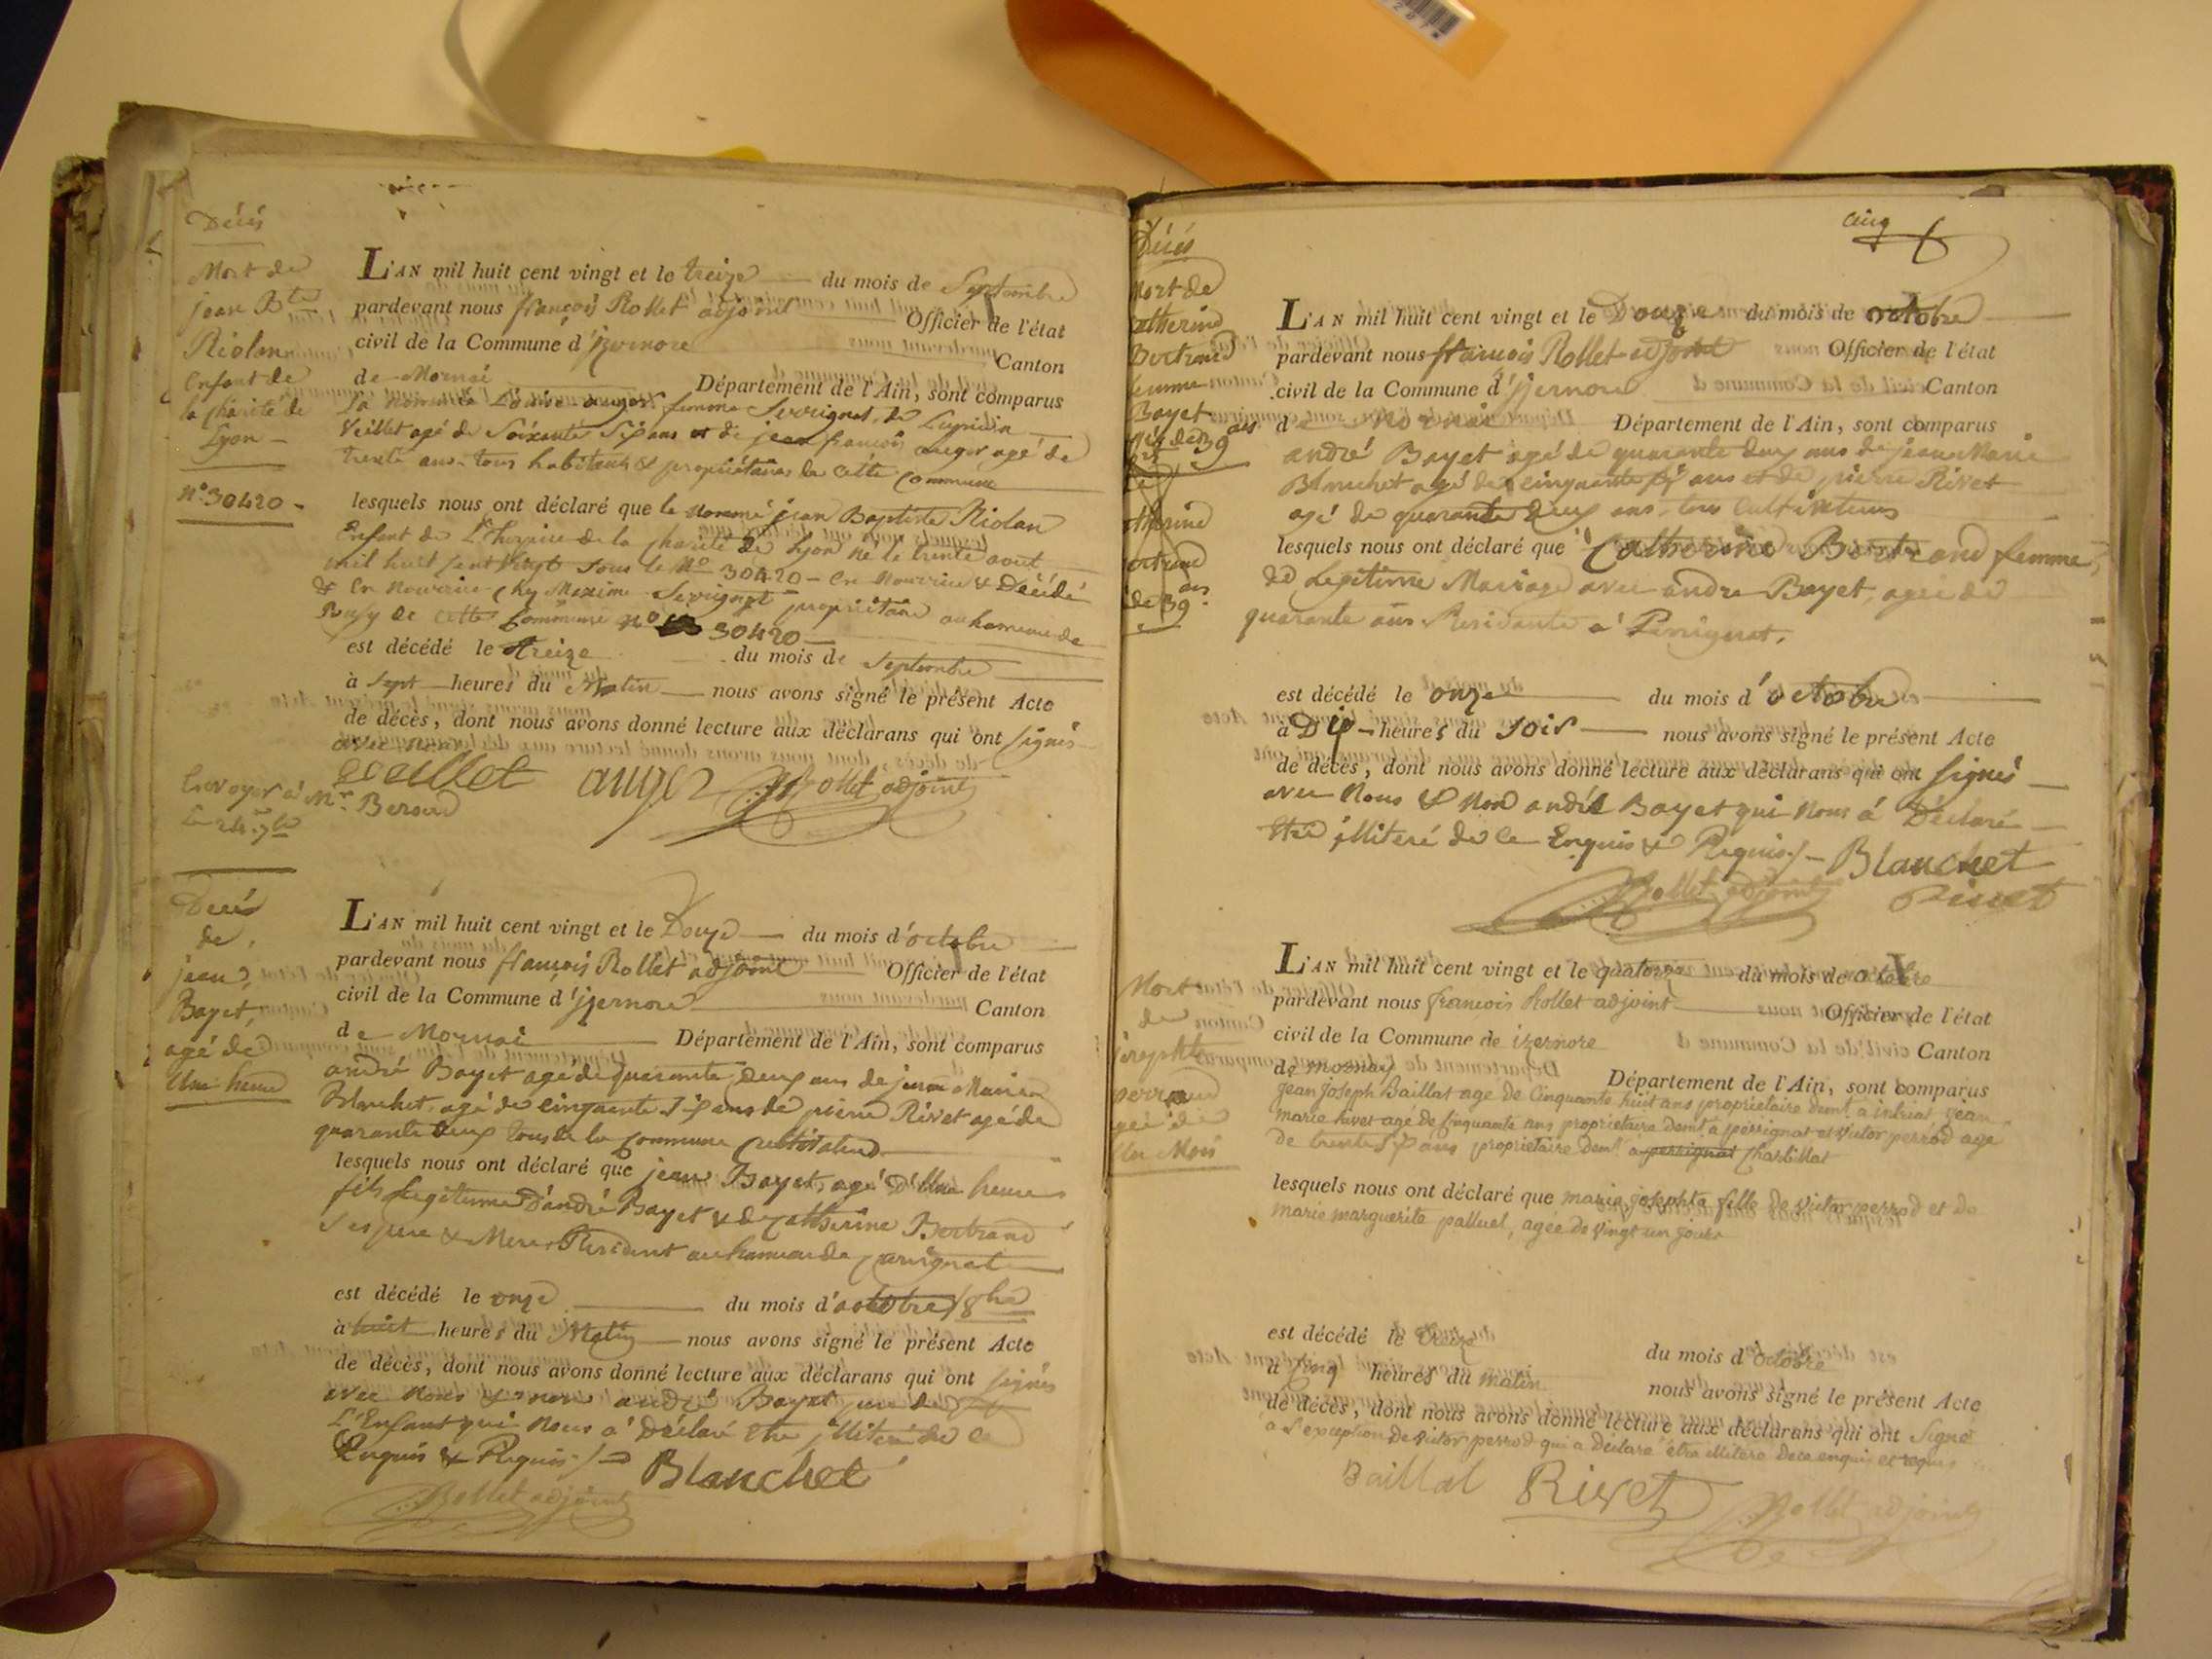 Décés
Mort de
jean Bte
Riolan
Enfant de
la charité de
Lyon
N° 30420
L'AN mil huit cent vingt et le treize du mois de Septembre
pardevant nous françois Rollet adjoint Officier de l'état
civil de la Commune d'izernore Canton
de Mornai Département de l'Ain, sont comparus
femme Sevrignat, de
Veillet agé de Soixante Six ans et de jean françois auger agé de
trente ans tous habitants & propriétaires de cette Commune
lesquels nous ont déclaré que le nommé jean Baptiste Riolan
Enfant de L'hospice de la charité de Lyon né le trente aout
mil huit cent vingt sous le N° 30420 En nourrice & Décédé
& En nourrice chez Maxime Sevrignat propriétaire au hameau de
de cette Commune N° 30420
est décédé le treize du mois de Septembre
à Sept heures du Matin nous avons signé le présent Acte
de décès, dont nous avons donné lecture aux déclarans qui ont signés
avec nous
veillet auger Rollet adjoint
Envoyer à Mr Beroud
le 24 7bre
Décés
de
jean
Bayet,
agé de
Une heure
L'AN mil huit cent vingt et le Douze du mois d'octobre
pardevant nous françois Rollet adjoint Officier de l'état
civil de la Commune d'izernore Canton
de Mornai Département de l'Ain, sont comparus
andré Bayet agé de quarante deux ans de jean Marie
Blanchet agé de cinquante Six ans de pierre Rivet agé de
quarante deux tous de la Commune Cultivateurs
lesquels nous ont déclaré que jean Bayet, agé D'Une heure
fils Legitime D'andré Bayet & de Catherine Bertrand
Ses pere & Mere Résident au hameau de perrignat
est décédé le onze du mois d'octobre 8bre
à huit heures du Matin nous avons signé le présent Acte
de décès, dont nous avons donné lecture aux déclarans qui ont signés
avec nous & non andré Bayet pere de
L'Enfant qui nous a Déclaré Etre illiteré de ce
Enquis & Requis
Blanchet
Rollet adjoint
Décés
Mort de
Catherine
Bertrand
femme
Bayet
agée de 39 ans
L'AN mil huit cent vingt et le Douze du mois de octobre
pardevant nous françois Rollet adjoint Officier de l'état
civil de la Commune d'izernore Canton
de Mornai Département de l'Ain, sont comparus
andré Bayet agé de quarante deux ans de jean Marie
Blanchet agé de cinquante Six ans et de pierre Rivet
agé de quarante deux ans tous Cultivateurs
lesquels nous ont déclaré que Catherine Bertrand femme
de Legitime Mariage avec andre Bayet, agée de
quarante ans Residante à Perrignat.
est décédé le onze du mois d'octobre
à Dix heures du Soir nous avons signé le présent Acte
de décès, dont nous avons donné lecture aux déclarans qui ont signés
avec Nous & Non andré Bayet qui Nous à Déclaré
Etre illiteré de ce Enquis & Requis Blanchet
Rollet adjoint Rivet
Mort
de
josephte
perraud
agée de
Un Mois
L'AN mil huit cent vingt et le quatorze du mois de octobre
pardevant nous françois Rollet adjoint Officier de l'état
civil de la Commune de izernore Canton
de mornay Département de l'Ain, sont comparus
jean joseph Baillat agé de Cinquante huit ans propriétaire demt a intriat jean
marie Rivet agé de Cinquante ans propriétaire demt a perrignat et victor perrod agé
de trente Six ans propriétaire demt à perrignat Charbillat
lesquels nous ont déclaré que marie josephte fille de victor perrod et de
marie marguerite palluel, agée de vingt un jours
est décédé le treize du mois d'octobre
à Cinq heures du matin nous avons signé le présent Acte
de décès, dont nous avons donné lecture aux déclarans qui ont Signé
à l'exception de victor perrod qui a déclaré être illiteré de ce enquis et requis
Baillat Rivet Rollet adjoint